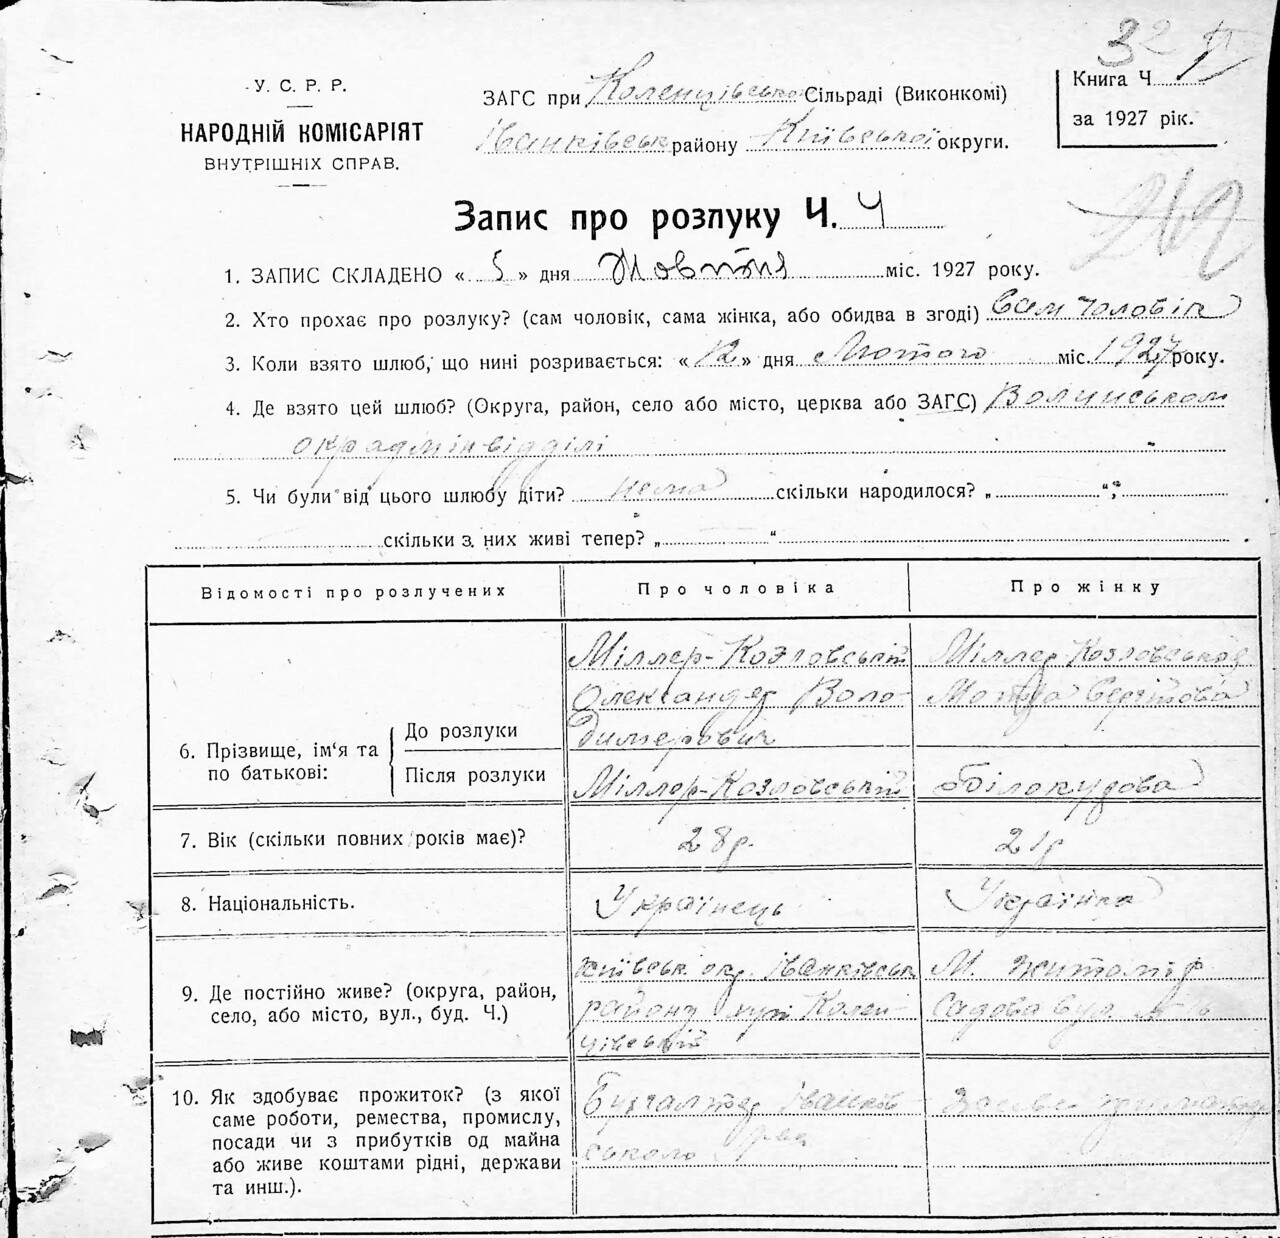 32
У. С. Р. Р.
НАРОДНІЙ КОМІСАРІЯТ
ВНУТРІШНІХ СПРАВ.
ЗАГС при Коленцівськ Сільраді (Виконкомі)
Іванківськ району Київської округи.
Книга Ч
за 1927 рік.
Запис про розлуку Ч. 4
212
1. ЗАПИС СКЛАДЕНО « 5 » дня Жовтня міс. 1927 року.
2. Хто прохає про розлуку? (сам чоловік, сама жінка, або обидва в згоді) Сам чоловік
3. Коли взято шлюб, що нині розривається: « 12 » дня Лютого міс. 1927 року.
4. Де взято цей шлюб? (Округа, район, село або місто, церква або ЗАГС) Волинським
окрадмінвідділі
5. Чи були від цього шлюбу діти? нема скільки народилося? „ “;
скільки з них живі тепер? „ “ .
Відомості про розлучених
Про чоловіка
Про жінку
6. Прізвище, ім‘я та по батькові:
До розлуки
Міллер-Козловський
Олександер Воло-
димерович
Міллер Козловська
Мотря Сергіївна
Після розлуки
Міллер-Козловський
Білокудова
7. Вік (скільки повних років має)?
28 р.
21 р
8. Національність.
Українець
Українка
9. Де постійно живе? (округа, район,
село, або місто, вул., буд. Ч.)
Київськ окр. Іванківськ
району Колен-
цівській
М. Житомір
Садова вул. №
10. Як здобуває прожиток? (з якої
саме роботи, ремества, промислу,
посади чи з прибутків од майна
або живе коштами рідні, держави
та инш.).
Бухгалтер Іванків-
ського